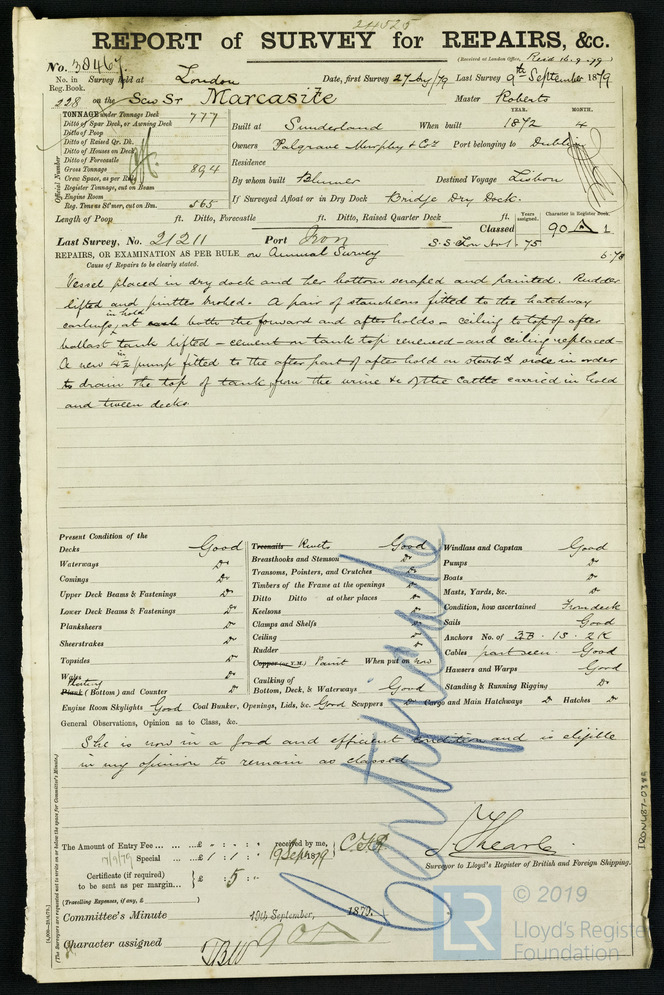 24525
REPORT of SURVEY for REPAIRS, &c.
(Received at London Office, Recd 16.9.79)
No. 38467
No. in Reg. Book. Survey held at London Date, first Survey 27 Last Survey 9th September 1879
228 on the Scw Sr Marcasite Master Roberts
TONNAGE under Tonnage Deck 777
Ditto of Spar Deck, or Awning Deck
Ditto of Poop
Ditto of Raised Qr. Dk.
Ditto of Houses on Deck
Ditto of Forecastle
Gross Tonnage 894
Crew Space, as per Rule
Register Tonnage, cut on Beam
Engine Room
Reg. Tonnage St'mer, cut on Bm. 565
Official Number
YEAR. MONTH.
Built at Sunderland When built 1872 4
Owners Palgrave Murphy & Co Port belonging to Dublin
Residence
By whom built Blumer Destined Voyage Lisbon
If Surveyed Afloat or in Dry Dock Bridge Dry Dock.
Length of Poop ft. Ditto, Forecastle ft. Ditto, Raised Quarter Deck ft.
Years assigned. Character in Register Book.
Classed 90 A 1
Last Survey, No. 21211 Port Iron S.S. Lon No 1-75
6.78
REPAIRS, OR EXAMINATION AS PER RULE on Annual Survey
Cause of Repairs to be clearly stated.
Vessel placed in dry dock and her bottom scraped and painted. Rudder
lifted and pintles bushed. A pair of stancheons fitted to the hatchway
carlings, in hold at each both the forward and after holds - ceiling to top of after
ballast tank lifted - cement on tank top renewed - and ceiling replaced -
A new 4½ in pump fitted to the after part of after hold on starbd side in order
to drain the top of tank from the urine &c of the Cattle carried in hold
and tween decks
Present Condition of the
Decks Good
Waterways Do
Comings Do
Upper Deck Beams & Fastenings Do
Lower Deck Beams & Fastenings Do
Planksheers Do
Sheerstrakes Do
Topsides Do
Wales Do
Plating
Plank (Bottom) and Counter Do
Treenails Rivets Good
Breasthooks and Stemson Do
Transoms, Pointers, and Crutches Do
Timbers of the Frame at the openings Do
Ditto Ditto at other places Do
Keelsons Do
Clamps and Shelfs Do
Ceiling Do
Rudder Do
Copper (or Y.M.) Paint When put on now
Caulking of
Bottom, Deck, & Waterways Good
Windlass and Capstan Good
Pumps Do
Boats Do
Masts, Yards, &c. Do
Condition, how ascertained From deck
Sails Good
Anchors No. of 3.B. 1S. 2K
Cables part seen. Good
Hawsers and Warps Good
Standing & Running Rigging Do
Engine Room Skylights Good Coal Bunker, Openings, Lids, &c. Good Scuppers Do Cargo and Main Hatchways Do Hatches Do
General Observations, Opinion as to Class, &c.
She is now in a good and efficient condition and is eligible
in my opinion to remain as classed
Certificate
The Amount of Entry Fee £ : : received by me,
17/9/79 Special £ 1 : 1 : 19 Sept 1879
Certificate (if required)
to be sent as per margin £ : 5 :
(Travelling Expenses, if any, £ )
Surveyor to Lloyd's Register of British and Foreign Shipping.
Committee's Minute 19th September, 1879.
Character assigned 90 A 1
(The Surveyors are requested not to write on or below the space for Committee's Minute.)
IRON487-0392
LR
© 2019
Lloyd's Register
Foundation